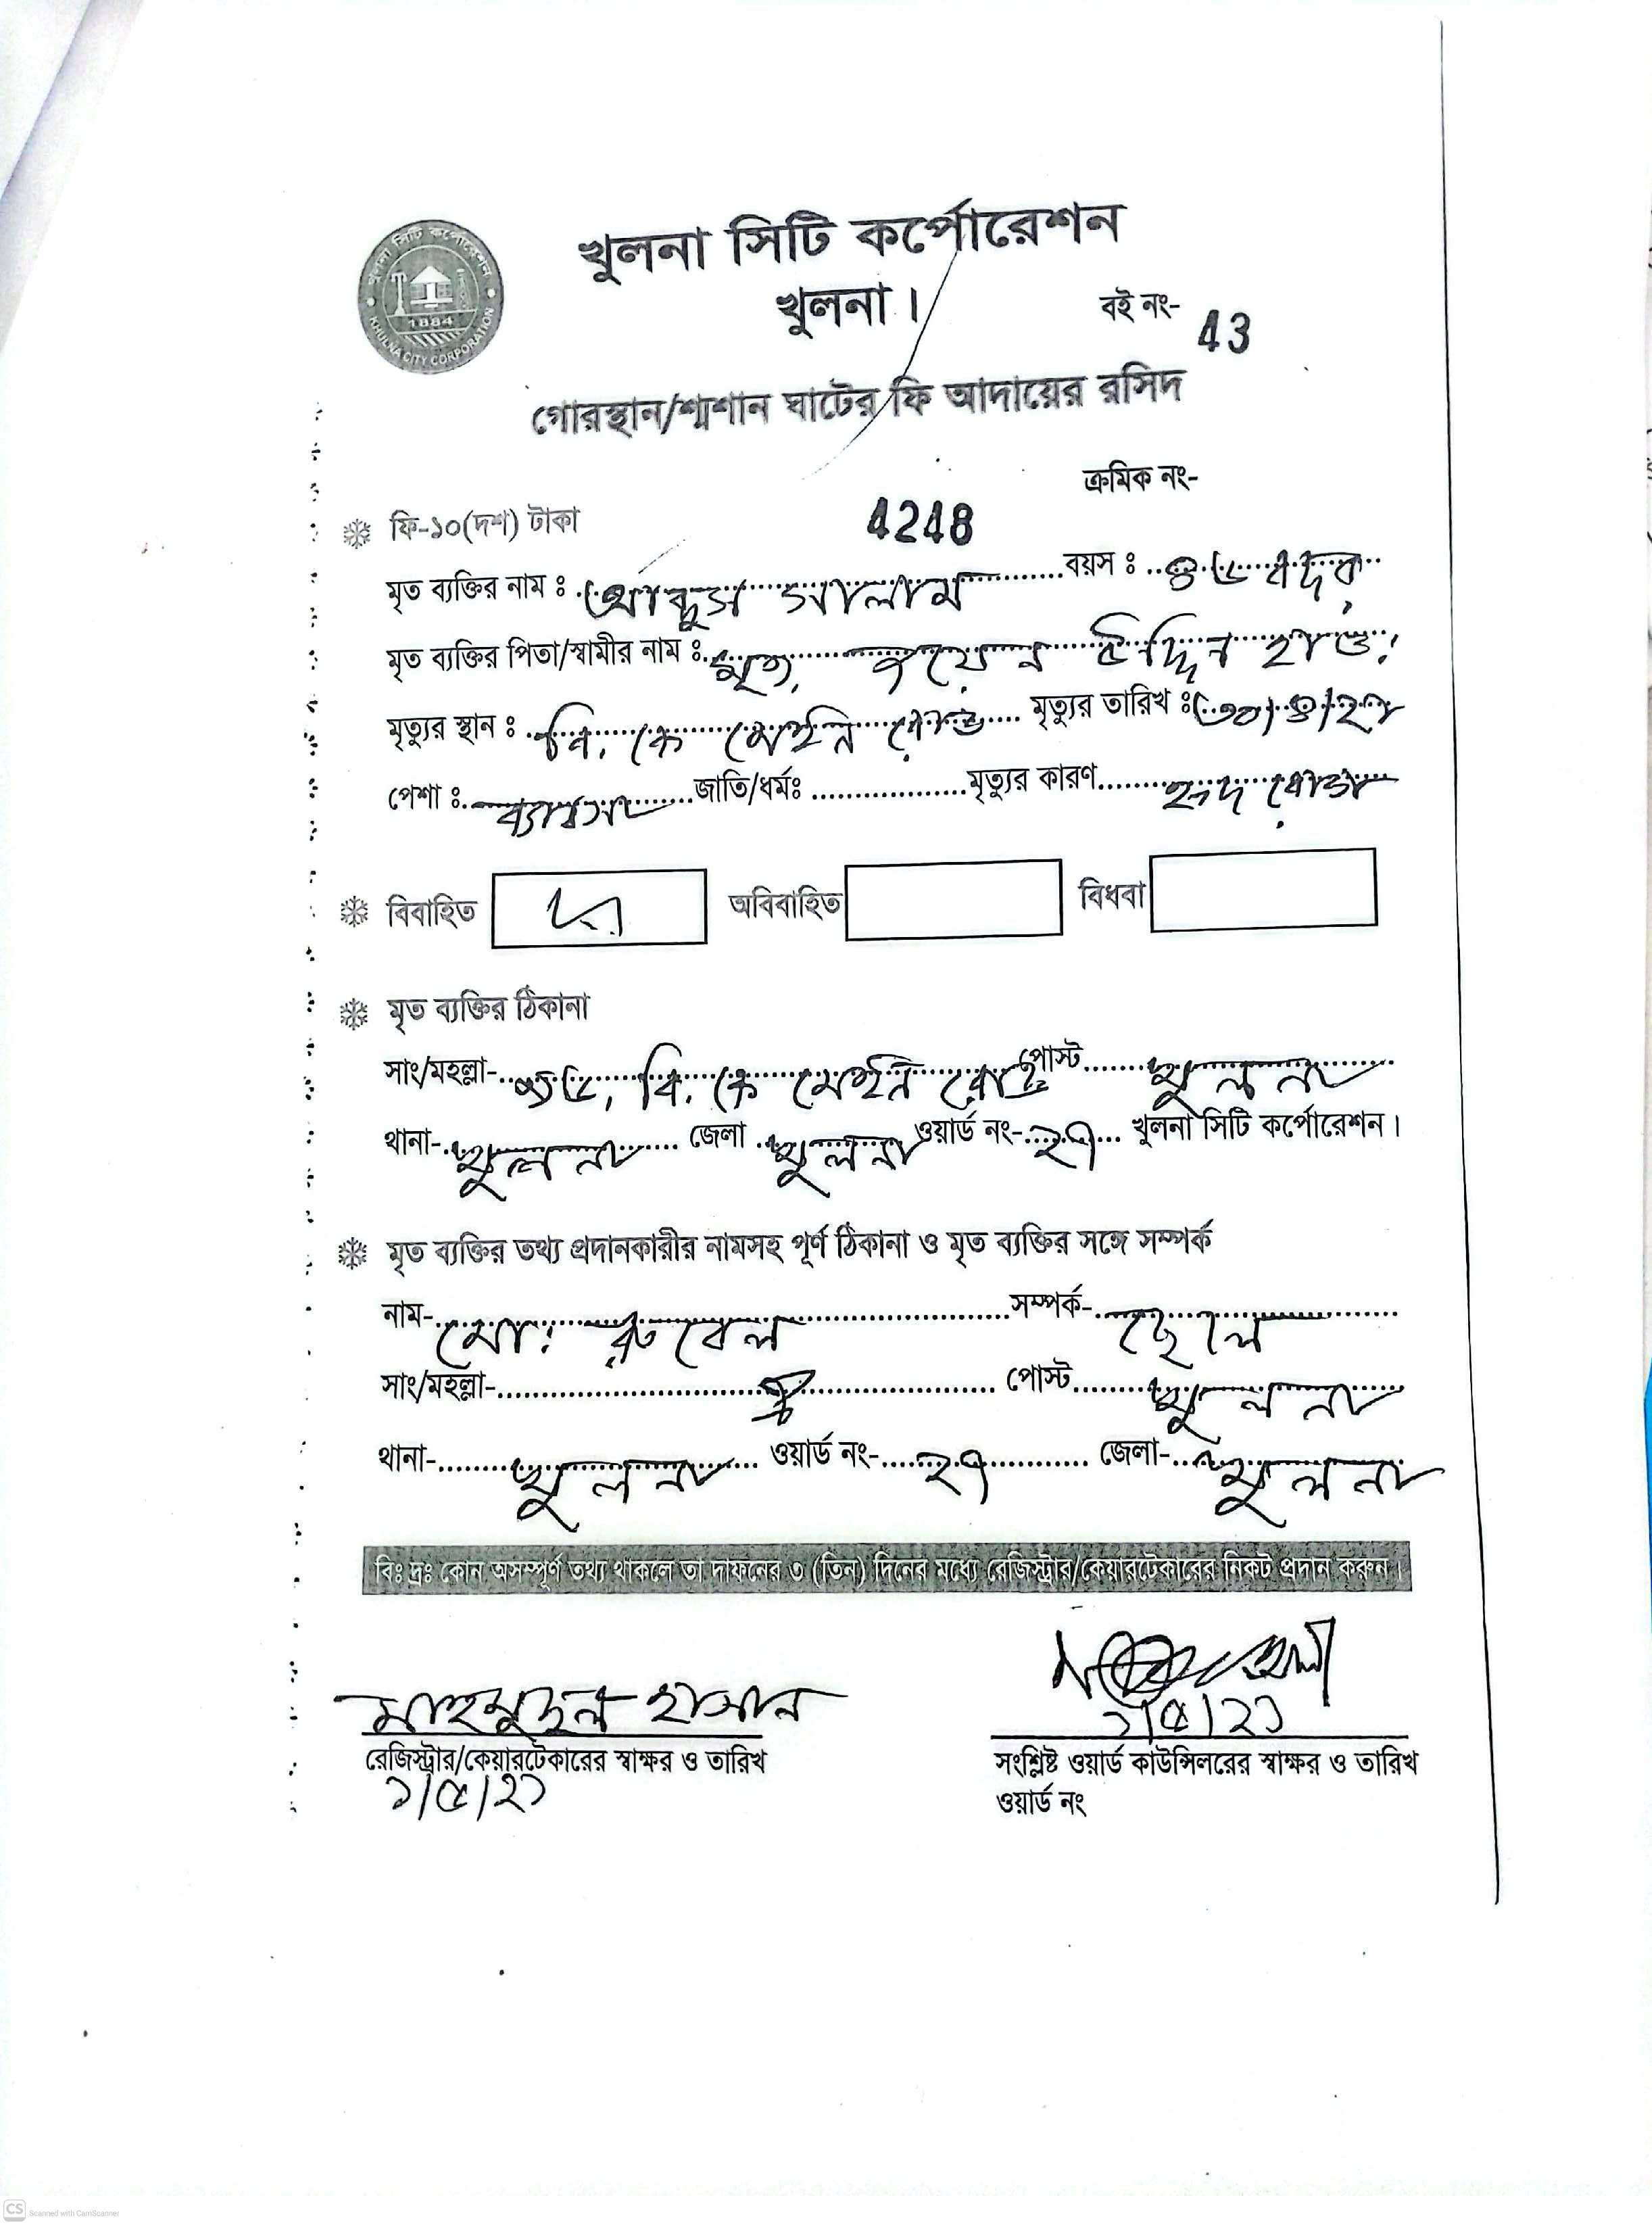 খুলনা সিটি কর্পোরেশন
KHULNA CITY CORPORATION
1884
খুলনা সিটি কর্পোরেশন
খুলনা।
বই নং- 43
গোরস্থান/শ্মশান ঘাটের ফি আদায়ের রসিদ
ক্রমিক নং-
ফি-১০(দশ) টাকা 4248
মৃত ব্যক্তির নাম ঃ আব্দুস সালাম বয়স ঃ
মৃত ব্যক্তির পিতা/স্বামীর নাম ঃ মৃত, উদ্দিন
মৃত্যুর স্থান ঃ বি. কে মেইন রোড মৃত্যুর তারিখ ঃ ৩০/৪/২১
পেশা ঃ ব্যাবসা জাতি/ধর্মঃ মৃত্যুর কারণ হৃদ রোগ
বিবাহিত অবিবাহিত বিধবা
মৃত ব্যক্তির ঠিকানা
সাং/মহল্লা- বি. কে মেইন রোড পোস্ট খুলনা
থানা- খুলনা জেলা খুলনা ওয়ার্ড নং- ২৭ খুলনা সিটি কর্পোরেশন।
মৃত ব্যক্তির তথ্য প্রদানকারীর নামসহ পূর্ণ ঠিকানা ও মৃত ব্যক্তির সঙ্গে সম্পর্ক
নাম- মো: রুবেল সম্পর্ক- ছেলে
সাং/মহল্লা- ঐ পোস্ট খুলনা
থানা- খুলনা ওয়ার্ড নং- ২৭ জেলা- খুলনা
বিঃ দ্রঃ কোন অসম্পূর্ণ তথ্য থাকলে তা দাফনের ৩ (তিন) দিনের মধ্যে রেজিস্ট্রার/কেয়ারটেকারের নিকট প্রদান করুন।
মাহমুদুল হাসান
১/৫/২১
রেজিস্ট্রার/কেয়ারটেকারের স্বাক্ষর ও তারিখ
১/৫/২১
সংশ্লিষ্ট ওয়ার্ড কাউন্সিলরের স্বাক্ষর ও তারিখ
ওয়ার্ড নং
CS Scanned with CamScanner